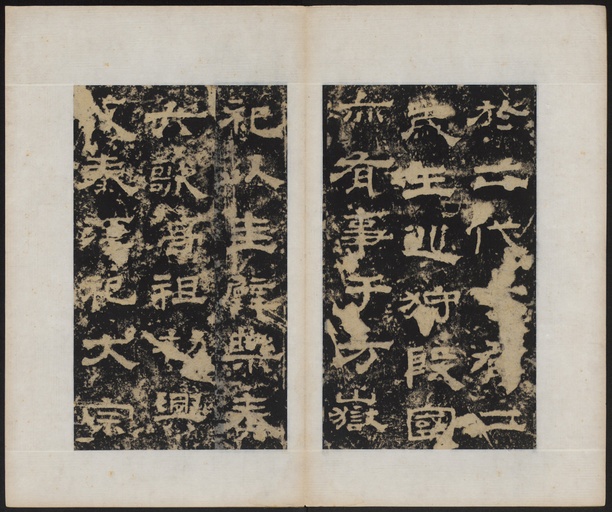 於二代有二
歲王巡狩殷國
亦有事于方嶽
祀以圭璧樂奏
六歌高祖初興
改秦淫祀大宗